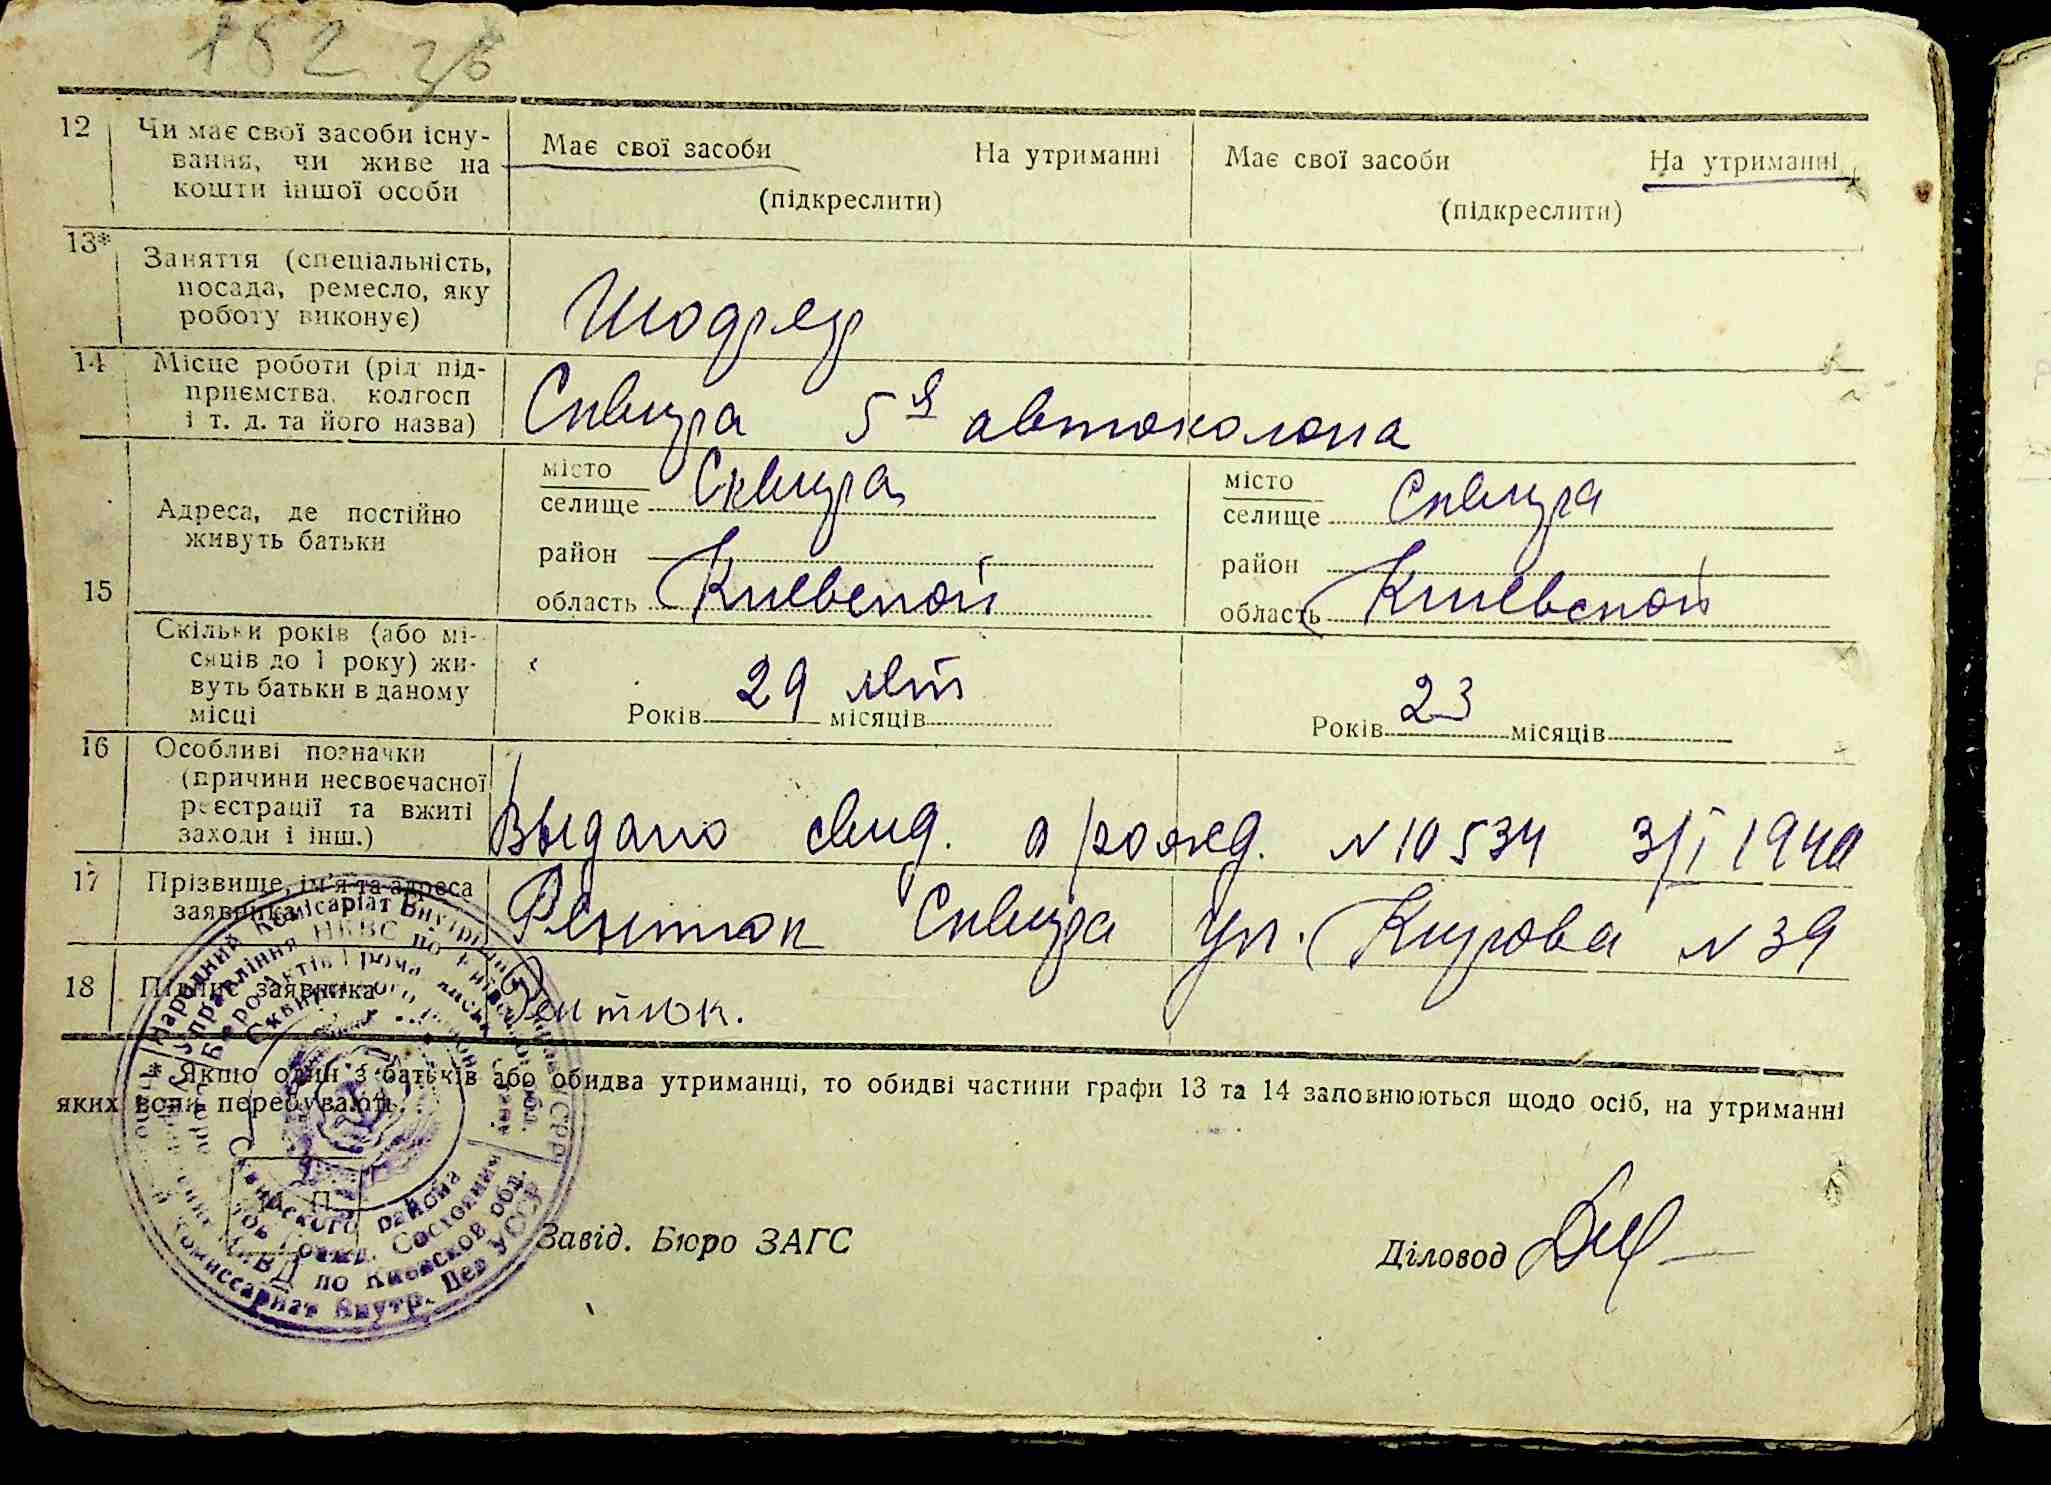 152 зб
12 Чи має свої засоби існу-
вання, чи живе на
кошти іншої особи
Має свої засоби На утриманні
(підкреслити)
Має свої засоби На утриманні
(підкреслити)
13* Заняття (спеціальність,
посада, ремесло, яку
роботу виконує)
Шофер
14 Місце роботи (рід під-
приємства, колгосп
і т. д. та його назва)
Сквира 5я автоколона
15 Адреса, де постійно
живуть батьки
місто
селище Сквира
район
область Киевской
місто
селище Сквира
район
область Киевской
Скільки років (або мі-
сяців до 1 року) жи-
вуть батьки в даному
місці
Років 29 лет місяців
Років 23 місяців
16 Особливі позначки
(причини несвоєчасної
реєстрації та вжиті
заходи і інш.)
Выдано свид. о рожд. N 10534 3/I 1940
17 Прізвище, ім'я та адреса
заявника
Рентюк Сквира ул. Кирова N 39
18 Підпис заявника
Рентюк.
* Якщо один з батьків або обидва утриманці, то обидві частини графи 13 та 14 заповнюються щодо осіб, на утриманні
яких вони перебувають.
Народний Комісаріат Внутрішніх Справ УСРР
Управління НКВС по Київській обл.
Бюро Актів Громадянського Стану
Сквирського району
Сквирского района
Актов Гражд. Состояния
НКВД по Киевской обл.
Комиссариат Внутр. Дел УССР
М. П.
Завід. Бюро ЗАГС
Діловод